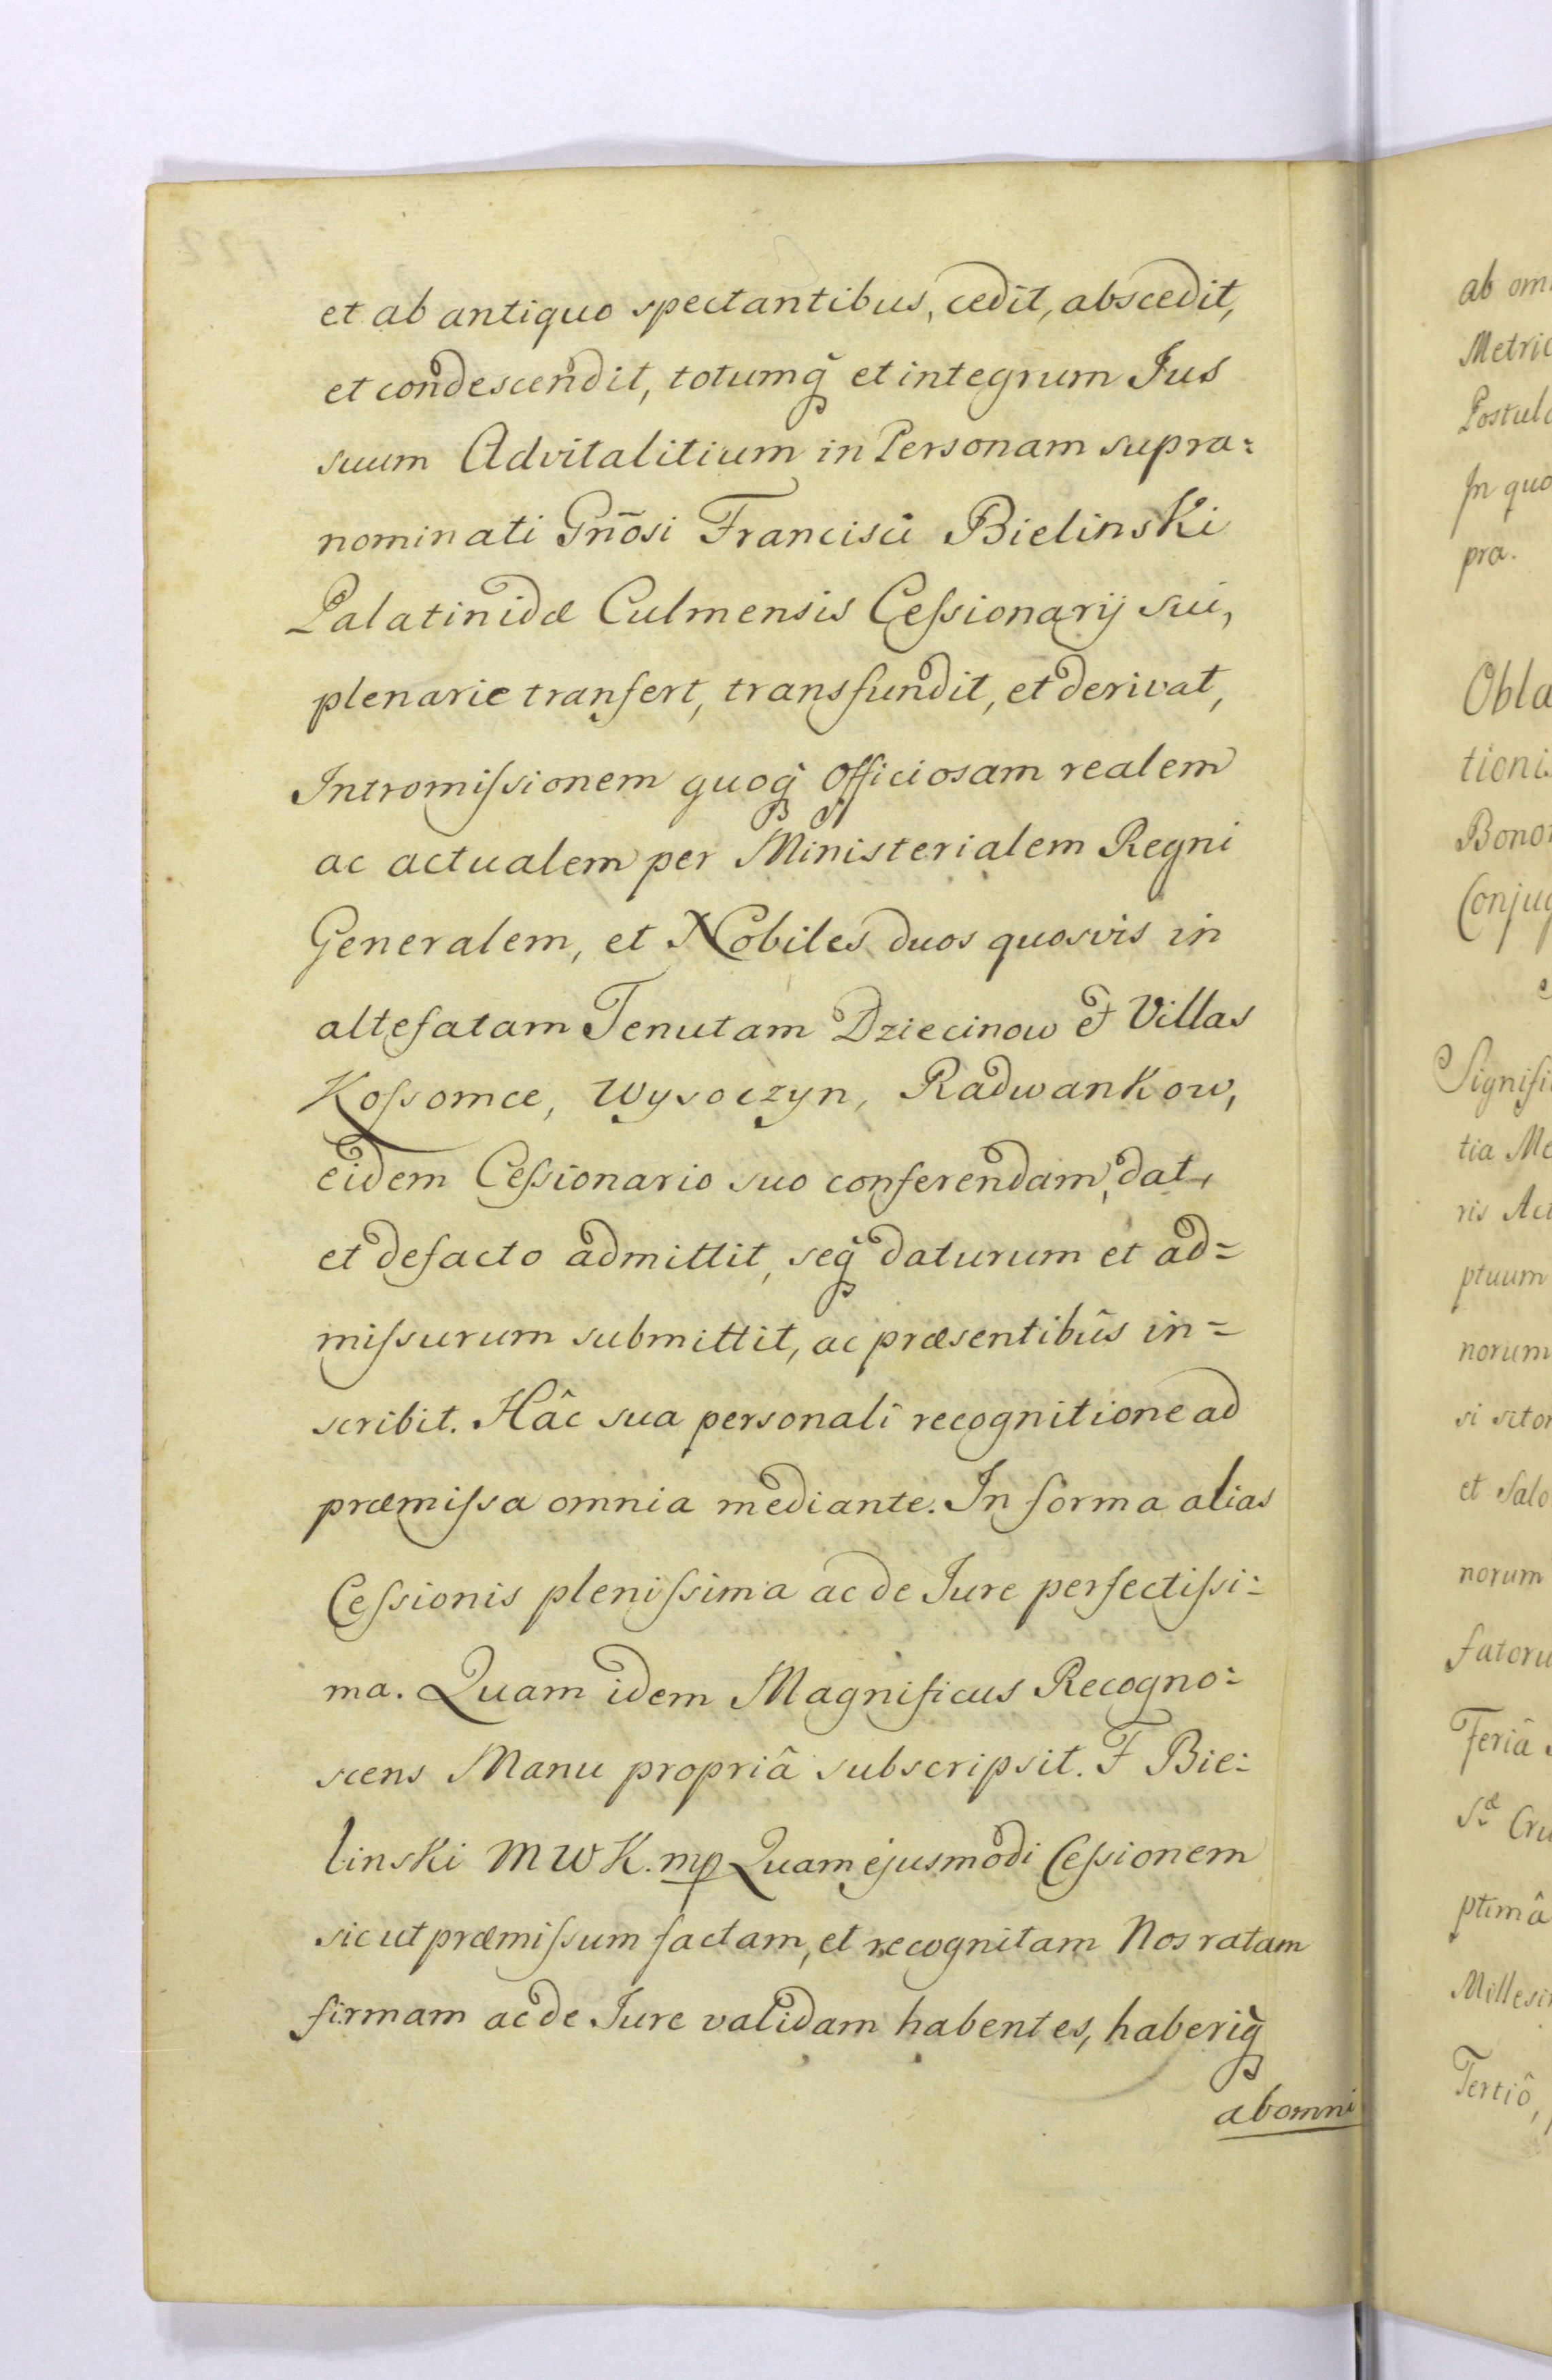 et ab antiquo spectantibus, cedit, abscedit,
et condescendit, totumq̃ et integrum Jus
suum Advitalitium in Personam supra=
nominati Gñosi Francisci Bielinski
Palatinidæ Culmensis Ceſsionarij sui,
plenarie transfert, transfundit, et derivat,
Intromiſsionem quoq̃ officiosam realem
ac actualem per Ministerialem Regni
Generalem, et Nobiles duos quosvis in
altefatam Tenutam Dziecinow et Villas
Koſsomce, Wysoczyn, Radwankow,
eidem Ceſsionario suo conferendam, dat,
et defacto admittit, seq̃ daturum et ad=
miſsurum submittit, ac præsentibûs in=
scribit. Hâc sua personali recognitione ad
præmiſsa omnia mediante. In forma alias
Ceſsionis pleniſsima ac de Jure perfectiſsi=
ma. Quam idem Magnificus Recogno=
scens Manu propriâ subscripsit. F Bie=
linski MWK. mp Quam ejusmodi Ceſsionem
sic ut præmiſsum factam, et recognitam Nos ratam
firmam ac de Jure validam habentes, haberiq̃
ab omni
ab om
Metric
Postula
In quo
pra.
Obla
tionis
Bonor
Conjug
Signifi
tia Me
ris Act
ptuum
norum
si sitor
et Salo
norum
fatoru
Feriâ
Sæ Cru
ptimâ
Millesi
Tertiô,